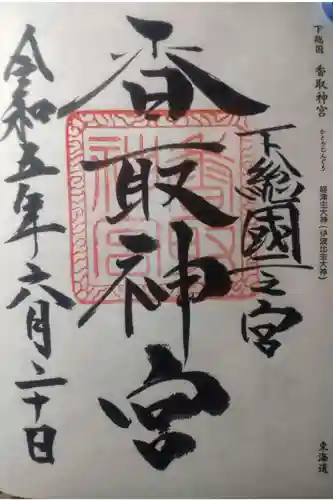 下総国 香取神宮
かとりじんぐう
経津主大神(伊波比主大神)
東海道
下総國一之宮
香取神宮
令和五年六月二十日
香取神宮